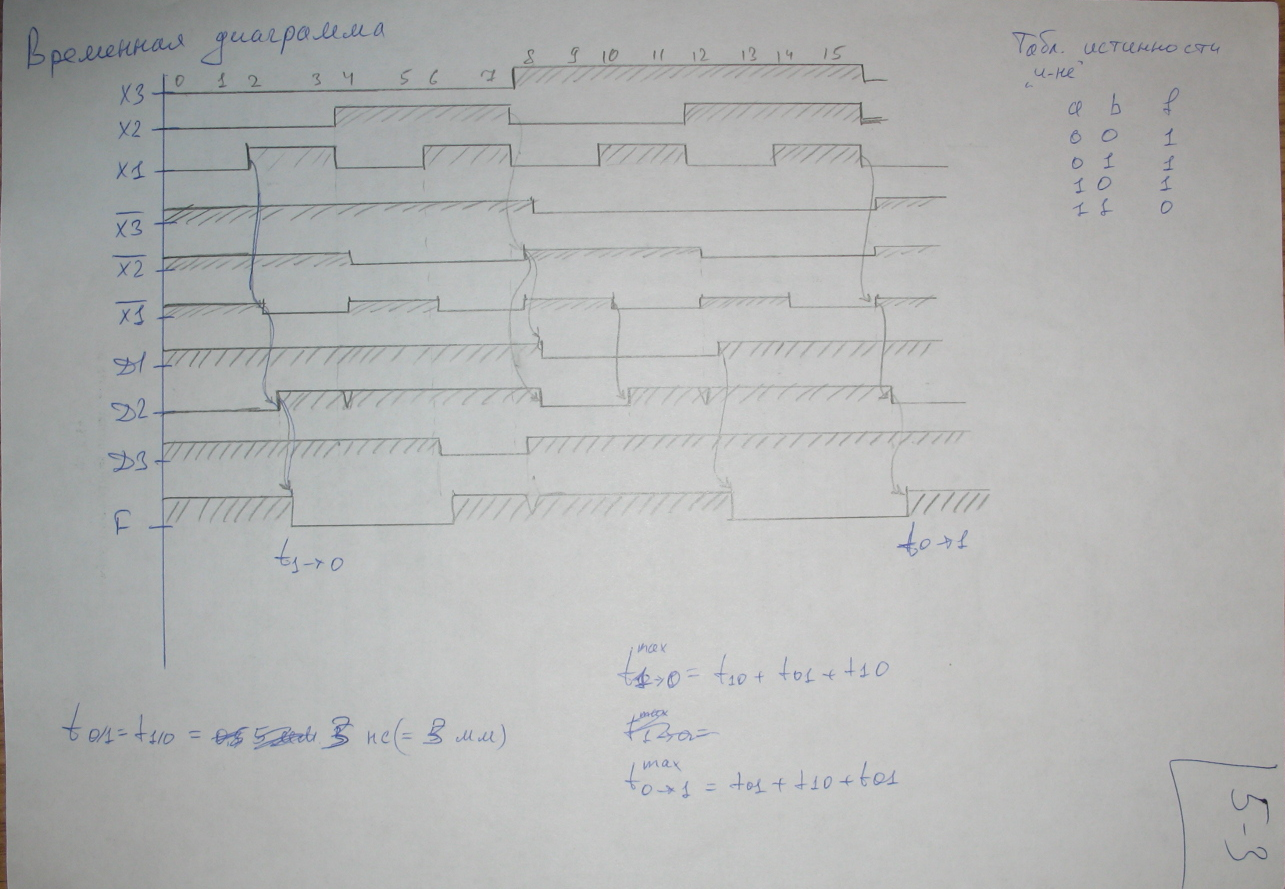 Временная диаграмма
0 1 2 3 4 5 6 7 8 9 10 11 12 13 14 15
X3
X2
X1
X̅3̅
X̅2̅
X̅1̅
D1
D2
D3
F
t1→0
t0→1
Табл. истинности
"и-не"
a b f
0 0 1
0 1 1
1 0 1
1 1 0
t01=t10 = 3 нс(= 3 мм)
t^max 1→0 = t10 + t01 + t10
t^max 0→1 = t01 + t10 + t01
5-3